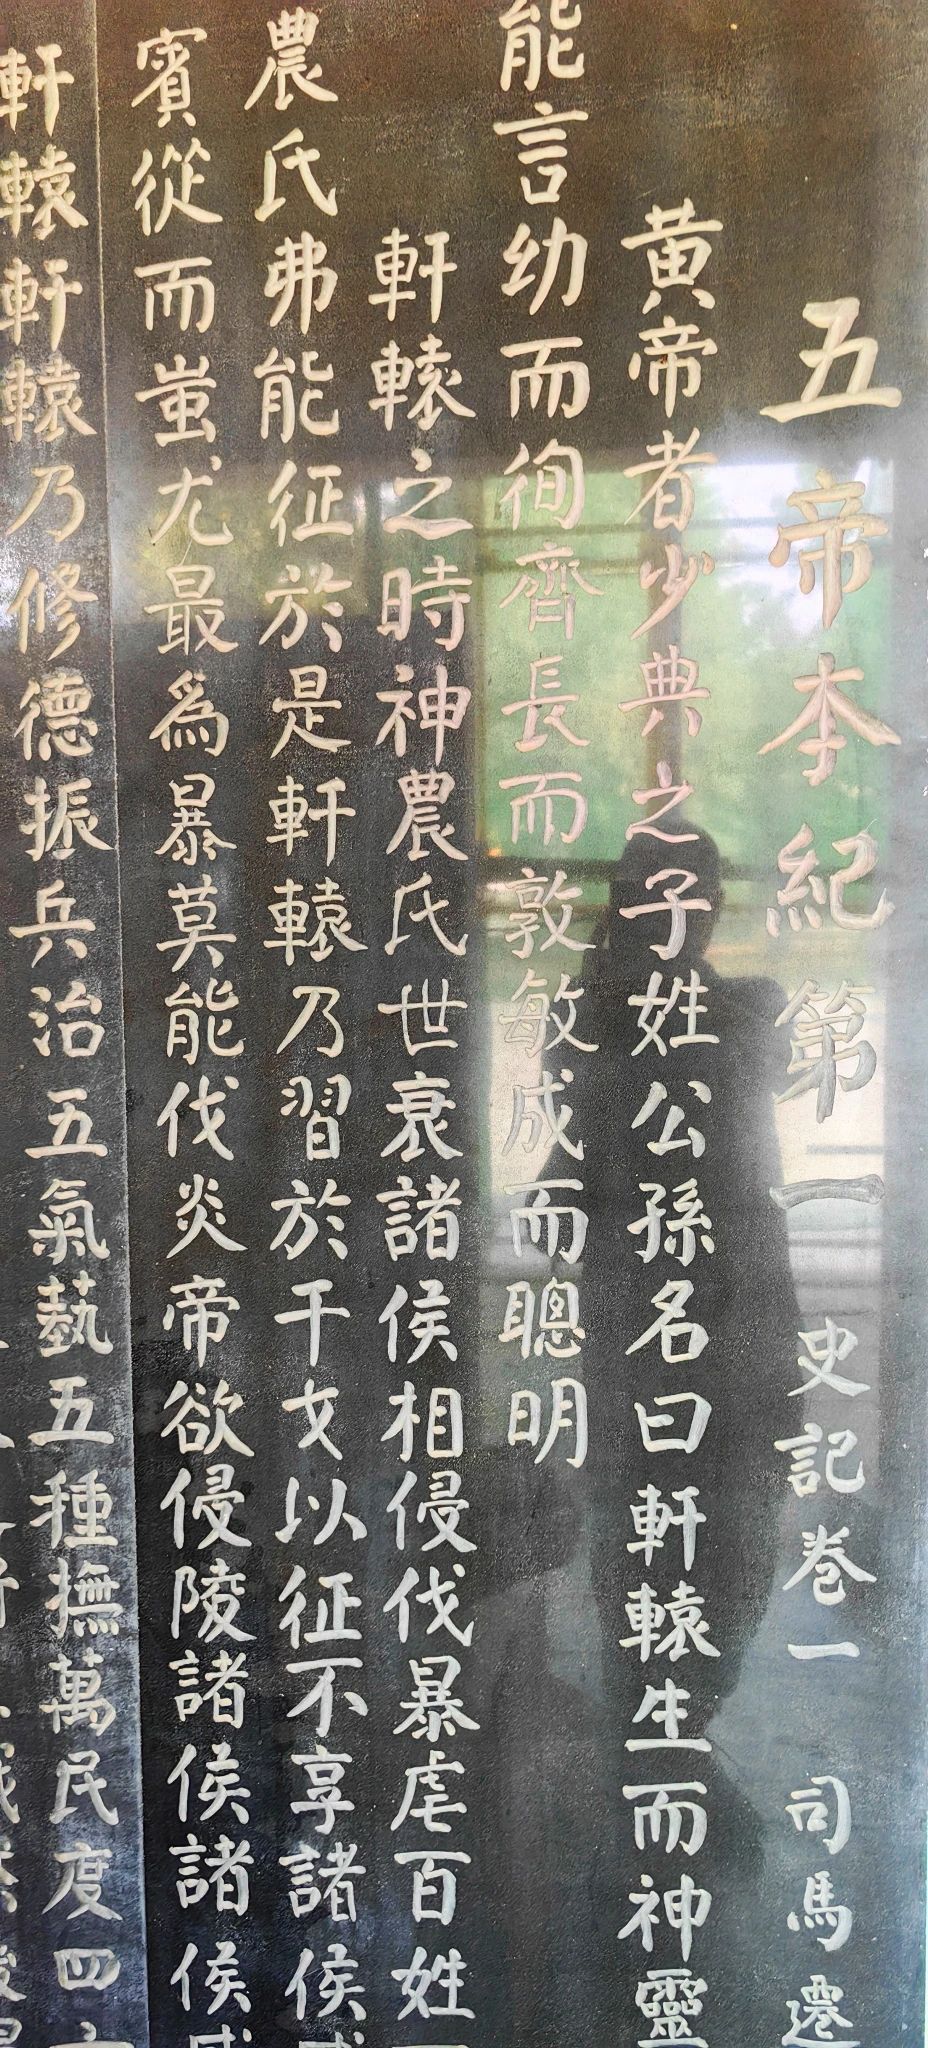 五帝本紀第一 史記卷一 司馬遷
黃帝者少典之子姓公孫名曰軒轅生而神靈
能言幼而徇齊長而敦敏成而聰明
軒轅之時神農氏世衰諸侯相侵伐暴虐百姓
農氏弗能征於是軒轅乃習於干戈以征不享諸侯咸
賓從而蚩尤最為暴莫能伐炎帝欲侵陵諸侯諸侯咸
軒轅軒轅乃修德振兵治五氣藝五種撫萬民度四